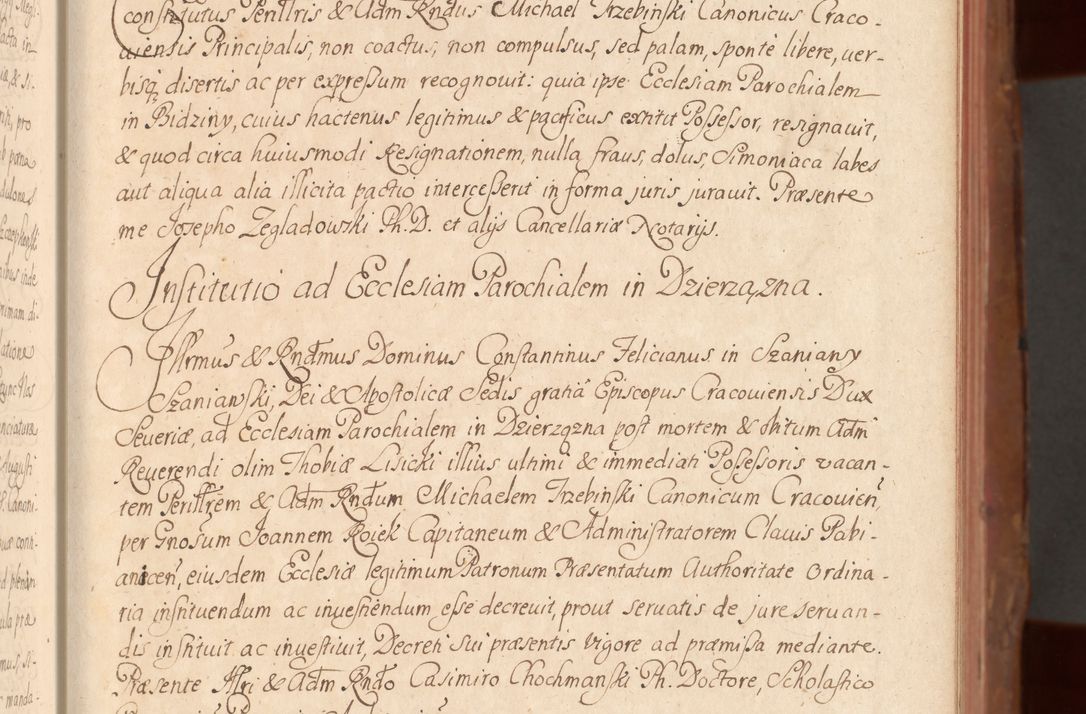 constitutus Perillris & Adm Rndus Michael Trzebinski Canonicus Craco-
uiensis Principalis, non coactus, non compulsus, sed palam, spontè libere, ver-
bisq disertis ac per expressum recognouit: quia ipse Ecclesiam Parochialem
in Bidziny, cuius hactenus legitimus & pacificus extitit Possessor, resignauit,
& quod circa huiusmodi Resignationem, nulla fraus, dolus, Simoniaca labes
aut aliqua alia illicita pactio intercesserit in forma juris jurauit. Præsente
me Josepho Zegladowski Ph. D. et alijs Cancellariæ Notarijs.
Institutio ad Ecclesiam Parochialem in Dzierzązna.
Illrmus & Rndmus Dominus Constantinus Felicianus in Szaniawy
Szaniawski, Dei & Apostolicæ Sedis gratiâ Episcopus Cracouiensis Dux
Seueriæ, ad Ecclesiam Parochialem in Dzierzązna post mortem & obitum Adm
Reuerendi olim Thobiæ Lisicki illius ultimi & immediati Possessoris vacan-
tem Perillrem & Adm Rndum Michaelem Trzebinski Canonicum Cracouien,
per Gnosum Joannem Roiek Capitaneum & Administratorem Clauis Pabi-
anicen, eiusdem Ecclesiæ legitimum Patronum Præsentatum Authoritate Ordina-
ria instituendum ac inuestiendum esse decreuit, prout seruatis de jure seruan-
dis instituit ac inuestiuit, Decreti sui præsentis vigore ad præmissa mediante.
Præsente Illri & Adm Rndo Casimiro Chochmanski Ph. Doctore, Scholastico